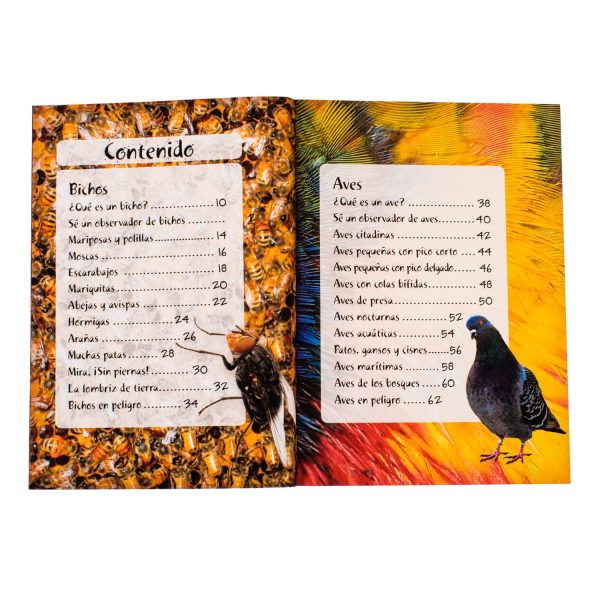 Contenido
Bichos
¿Qué es un bicho? .................. 10
Sé un observador de bichos ............
Mariposas y polillas................. 14
Moscas ................................ 16
Escarabajos .......................... 18
Mariquitas ........................... 20
Abejas y avispas .................... 22
Hormigas ................. 24
Arañas .................... 26
Muchas patas ........ 28
Mira, ¡Sin piernas! ............ 30
La lombriz de tierra............... 32
Bichos en peligro .......... 34
Aves
¿Qué es un ave? ..................... 38
Sé un observador de aves.......... 40
Aves citadinas ....................... 42
Aves pequeñas con pico corto .... 44
Aves pequeñas con pico delgado...... 46
Aves con colas bífidas............... 48
Aves de presa ........................ 50
Aves nocturnas ............... 52
Aves acuáticas .............. 54
Patos, gansos y cisnes......56
Aves marítimas ............ 58
Aves de los bosques .....60
Aves en peligro ....... 62